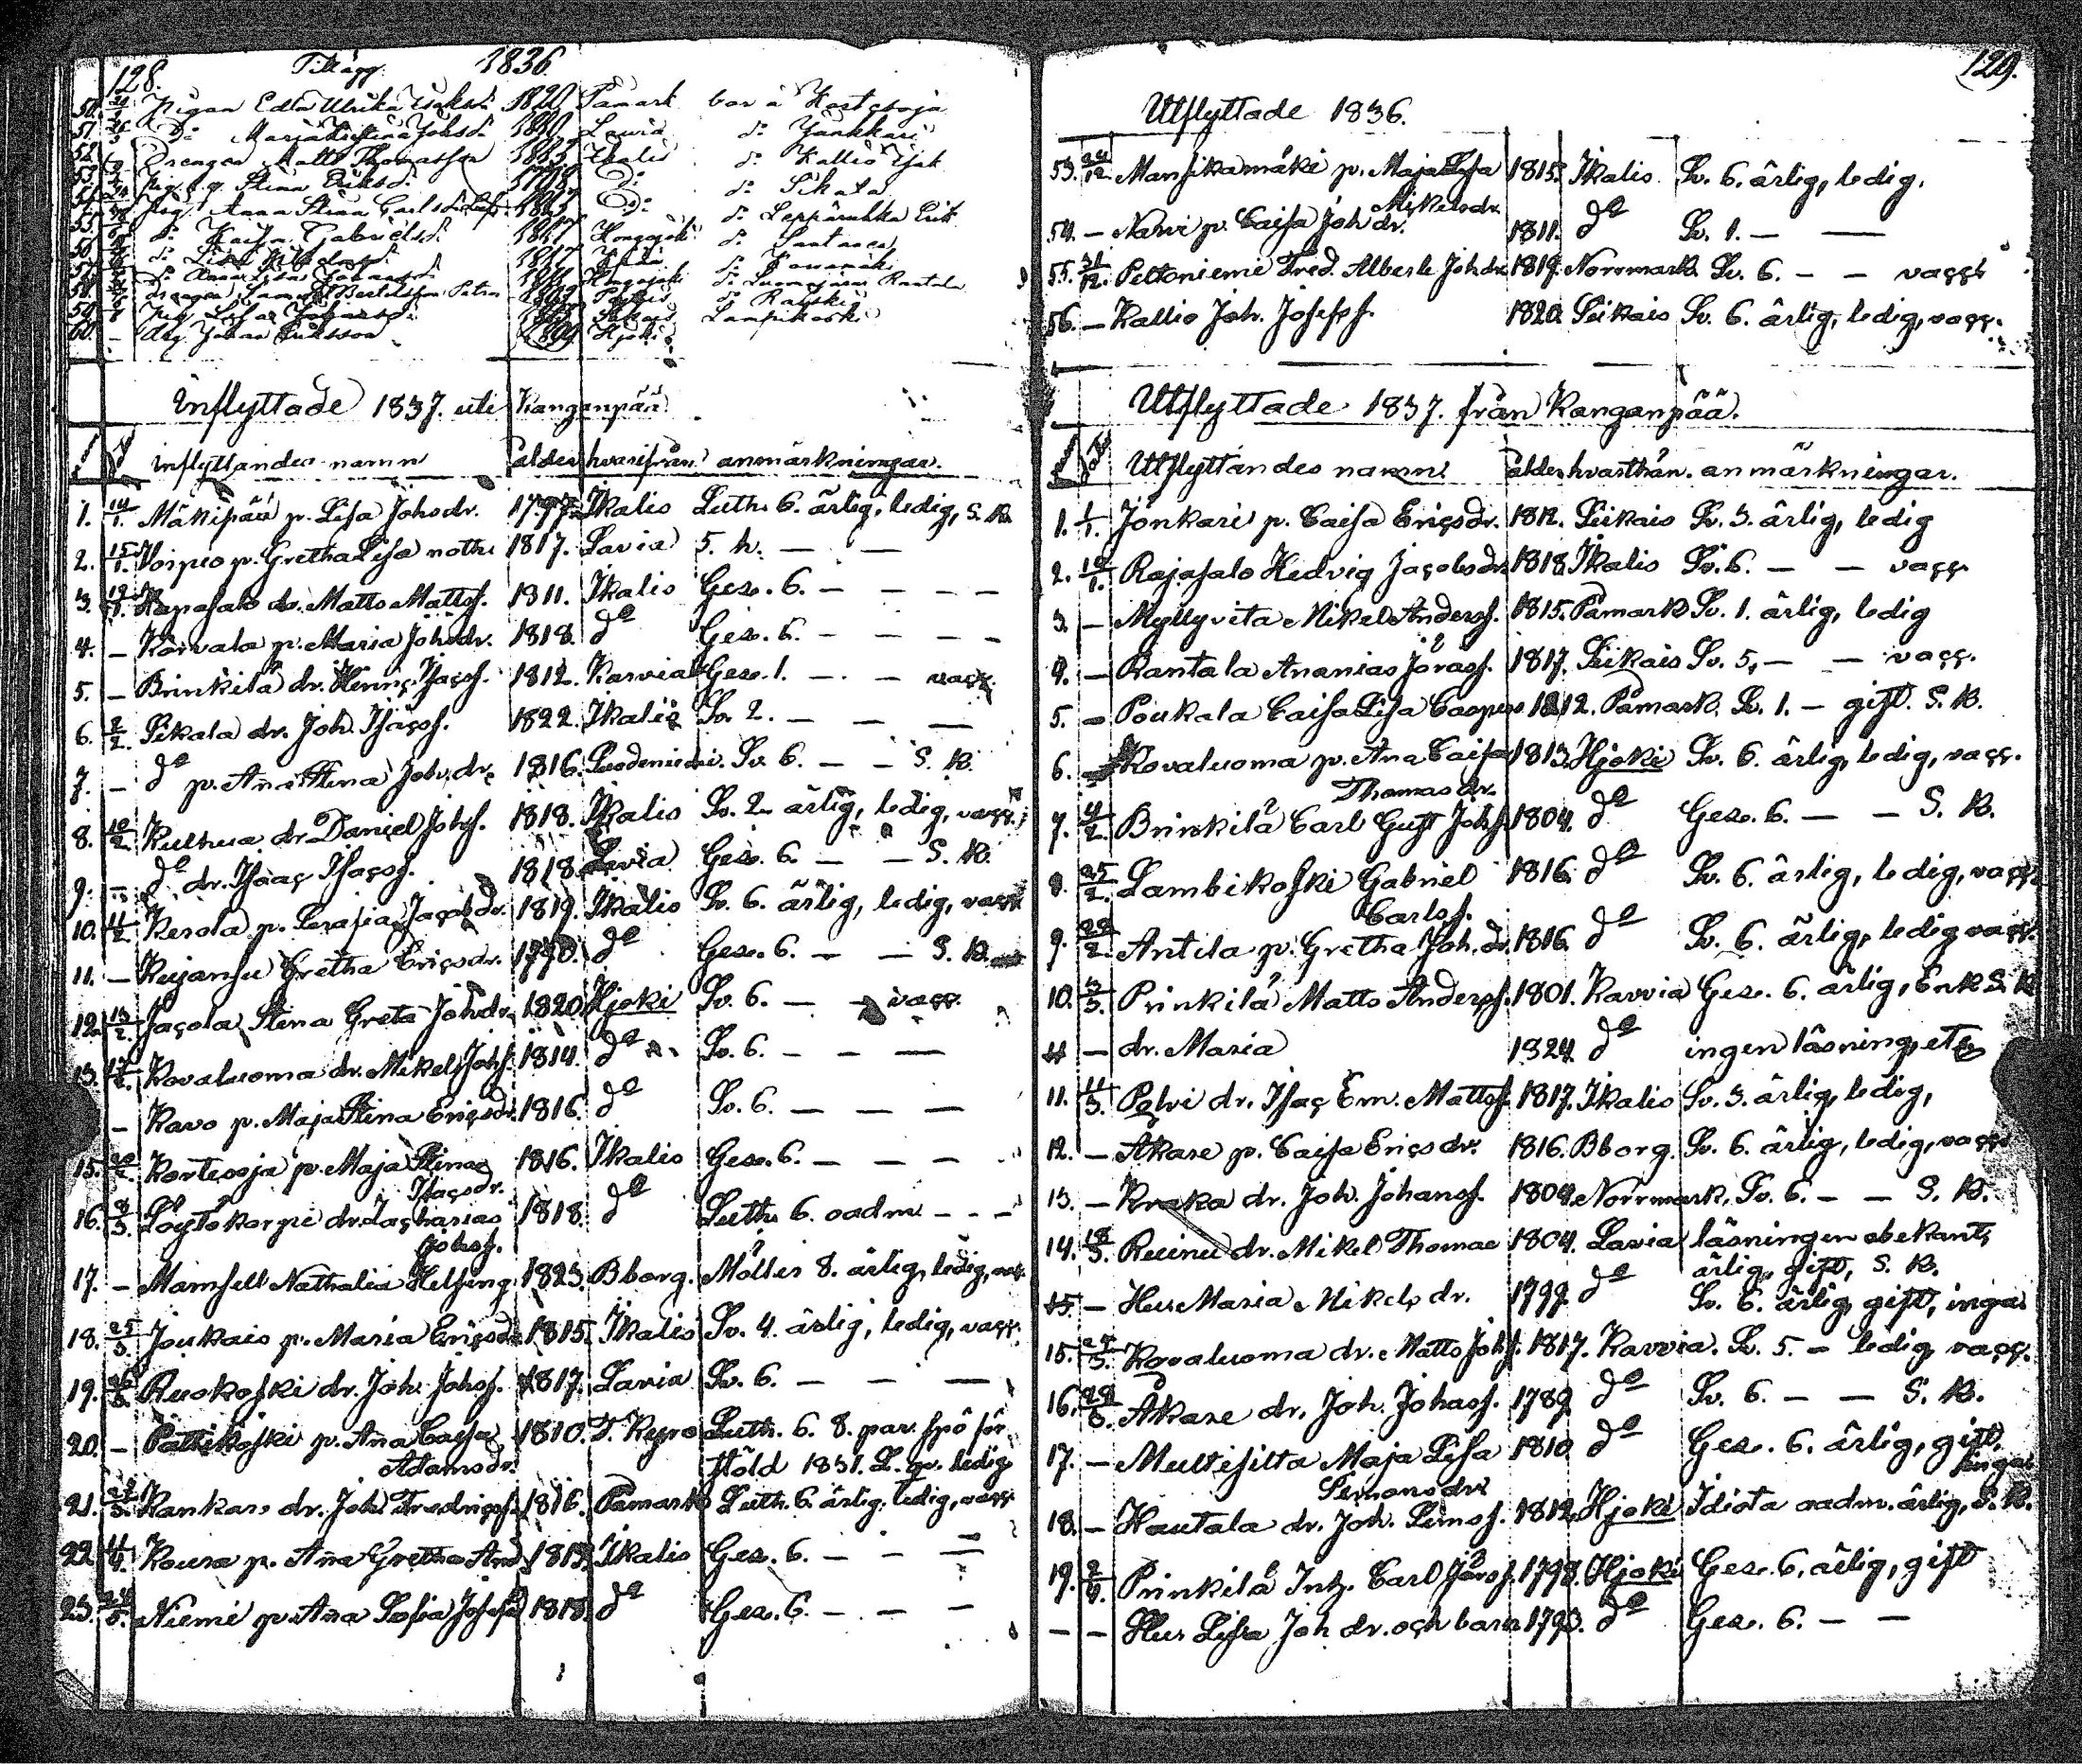 128. Tillägg. 1836.
50. Pigan Edla Ulrika Isaksd. 1820 Påmark bor i Kortesoja
51. Do Maria Kristina Johsd. Lavia do Jänkkäri
52. Drengen Matts Thomasson Ikalis do Kallio Isak
53. Pig. Stina Eriksd. Do do Sikala
54. Pig. Anna Stina Carlsd. Do do Leppäruhka Erik
55. do Kaisa Gabrielsd. 1817 Hongojoki do Santanen
56. do Lisa 1817
57. do Anna Lisa Johansd. do Rantala
58. Drengen Samuel
59. Pig. Lisa Johansd. Lampikoski
60. – Drg Johan Eriksson Hjoki
Inflyttade 1837. uti Kanganpää
Inflyttandes namn ålder hvarifrån. anmärkningar.
1. 14/1. Mäkipää p. Lisa Johsdr. 1797. Ikalis Luth. 6. ärlig, ledig, S. K.
2. 15/1. Voipio p. Gretha Lisa noth. 1817. Lavia 5. h. – –
3. 19/1. Rapasalo dr. Matts Mattsf. 1811. Ikalis Gez. 6. – – – –
4. – Korvala p. Maria Johsdr. 1818. do Gez. 6. – – – –
5. – Brinkilä dr. Henriç Isaçsf. 1812. Karvia Gez. 1. – – vaçç.
6. 2/2. Sikala dr. Joh. Isaçsf. 1822. Ikalis Sv. 2. – – –
7. – do p. Aña Stina Joh. dr. 1816. Suodeniemi. Sv. 6. – – S. K.
8. 10/2. Kulhua dr. Daniel Johsf. 1818. Ikalis Sv. 2. ärlig, ledig, vaçç.
9. – do dr. Isaaç Isaçsf. 1818. Lavia Gez. 6. – – S. K.
10. 11/2 Kerola p. Serafia Jaçobsdr. 1819. Ikalis Sv. 6. ärlig, ledig, vaçç
11. – Kujansu Gretha Eriçsdr. 1790. do Gez. 6. – – S. K.
12. 13/2 Jaçola Stina Greta Johdr. 1820. Hjoki Sv. 6. – – vaçç.
13. 17/2. Kovaluoma dr. Mikel Johsf. 1814. do Sv. 6. – – –
– Kavo p. Maja Stina Eriçsdr. 1816. do Sv. 6. – – –
15. 20/2. Kortesoja p. Maja Stina 1816. Ikalis Gez. 6. – – –
Isaçsdr.
16. 9/3. Löytökorpi dr. Zaçharias 1818. do Luth. 6. oadm – – –
Johsf.
17. – Mamsell Nathalia Helsing 1823. Bborg. Möller 8. ärlig, ledig, vaç.
18. 25/3 Joukais p. Maria Eriçsdr. 1815. Ikalis Sv. 4. ärlig, ledig, vaçç.
19. 26/3. Ruokoski dr. Joh. Johsf. 1817. Lavia Sv. 6. – – –
20. – Pättikoski p. Aña Caisa 1810. T. Kyro Luth. 6. 8. par. spö för
Adamsdr. stöld 1831. L. qv. ledig
21. 27/3. Kankar dr. Joh. Fredriçsf. 1816. Påmark Luth. 6. ärlig. ledig, vaçç
22. 11/4. Koura p. Aña Gretha And. 1813. Ikalis Gez. 6. – – –
23. Niemi p. Aña Sofia Josefd 1818. do Gez. 6. – – –
129.
Utflyttade 1836.
53. 24/12. Mansikamäki p. Maja Lisa 1815. Ikalis. Sv. 6. ärlig, ledig.
Mikelsdr.
54. – Narvi p. Caisa Joh dr. 1811. do Sv. 1. – –
55. 31/12. Peltoniemi Fred. Alberte Johdr. 1819. Norrmark Sv. 6. – – vaçç
56. – Kallio Joh. Josefsf. 1820. Siikais Sv. 6. ärlig, ledig, vaçç.
Utflyttade 1837. från Kanganpää.
Utflyttandes namn. ålder hvarthän. anmärkningar.
1. 1/1. Jönkäri p. Caisa Eriçsdr. 1812. Siikais Sv. 3. ärlig, ledig
2. 10/1. Rajasalo Hedvig Jaçobsdr. 1818. Ikalis Sv. 6. – – vaçç
3. – Myllyvita Mikel Andersf. 1815. Påmark Sv. 1. ärlig, ledig
4. – Rantala Ananias Jöransf. 1817. Siikais Sv. 5. – – vaçç.
5. – Poukala Caisa Lisa Caspers 1812. Påmark. Sv. 1. – gift. S. K.
6. – Kovaluoma p. Aña Caisa 1813. Hjoki Sv. 6. ärlig, ledig, vaçç.
Thomasdr.
7. 4/2. Brinkilä Carl Gust Johsf. 1804. do Gez. 6. – – S. K.
8. 25/2. Lambikoski Gabriel 1816. do Sv. 6. ärlig, ledig, vaçç.
Carlsf.
9. Antila p. Gretha Joh. dr. 1816. do Sv. 6. ärlig, ledig vaçç.
10. 3/3. Prinkilä Matts Andersf. 1801. Karvia Gez. 6. ärlig, Enk. S. K
11 – dr. Maria 1824. do ingen läsning, etc
11. 11/3. Polvi dr. Isaç Em. Mattsf. 1817. Ikalis Sv. 3. ärlig, ledig,
12. – Äkäse p. Caisa Eriçsdr. 1816. Bborg. Sv. 6. ärlig, ledig, vaçç
13. – Kraka dr. Joh. Johansf. 1804. Norrmark. Sv. 6. – – S. K.
14. 18/3. Reinu dr. Mikel Thomae 1804. Lavia läsningen obekant,
ärlig, gift, S. K.
15. – Hus. Maria Mikels dr. 1799 do Sv. 6. ärlig gift, inga
15. Kovaluoma dr. Matts Johsf. 1817. Karvia. Sv. 5. – ledig, vaçç.
16. Äkäse dr. Joh. Johasf. 1789 do Sv. 6. – – S. K.
17. – Multisilta Maja Lisa 1810 do Gez. 6. ärlig, gift,
Simonsdr inga
18. – Hautala dr. Joh. Simsf. 1812. Hjoki Idiota oadm. ärlig, S. K.
19. 2/4. Prinkilä Inh. Carl Jörsf. 1798. Hjoki Gez. 6. ärlig, gift
– – Hus Lisa Joh dr. och barn 1793. do Gez. 6. – –